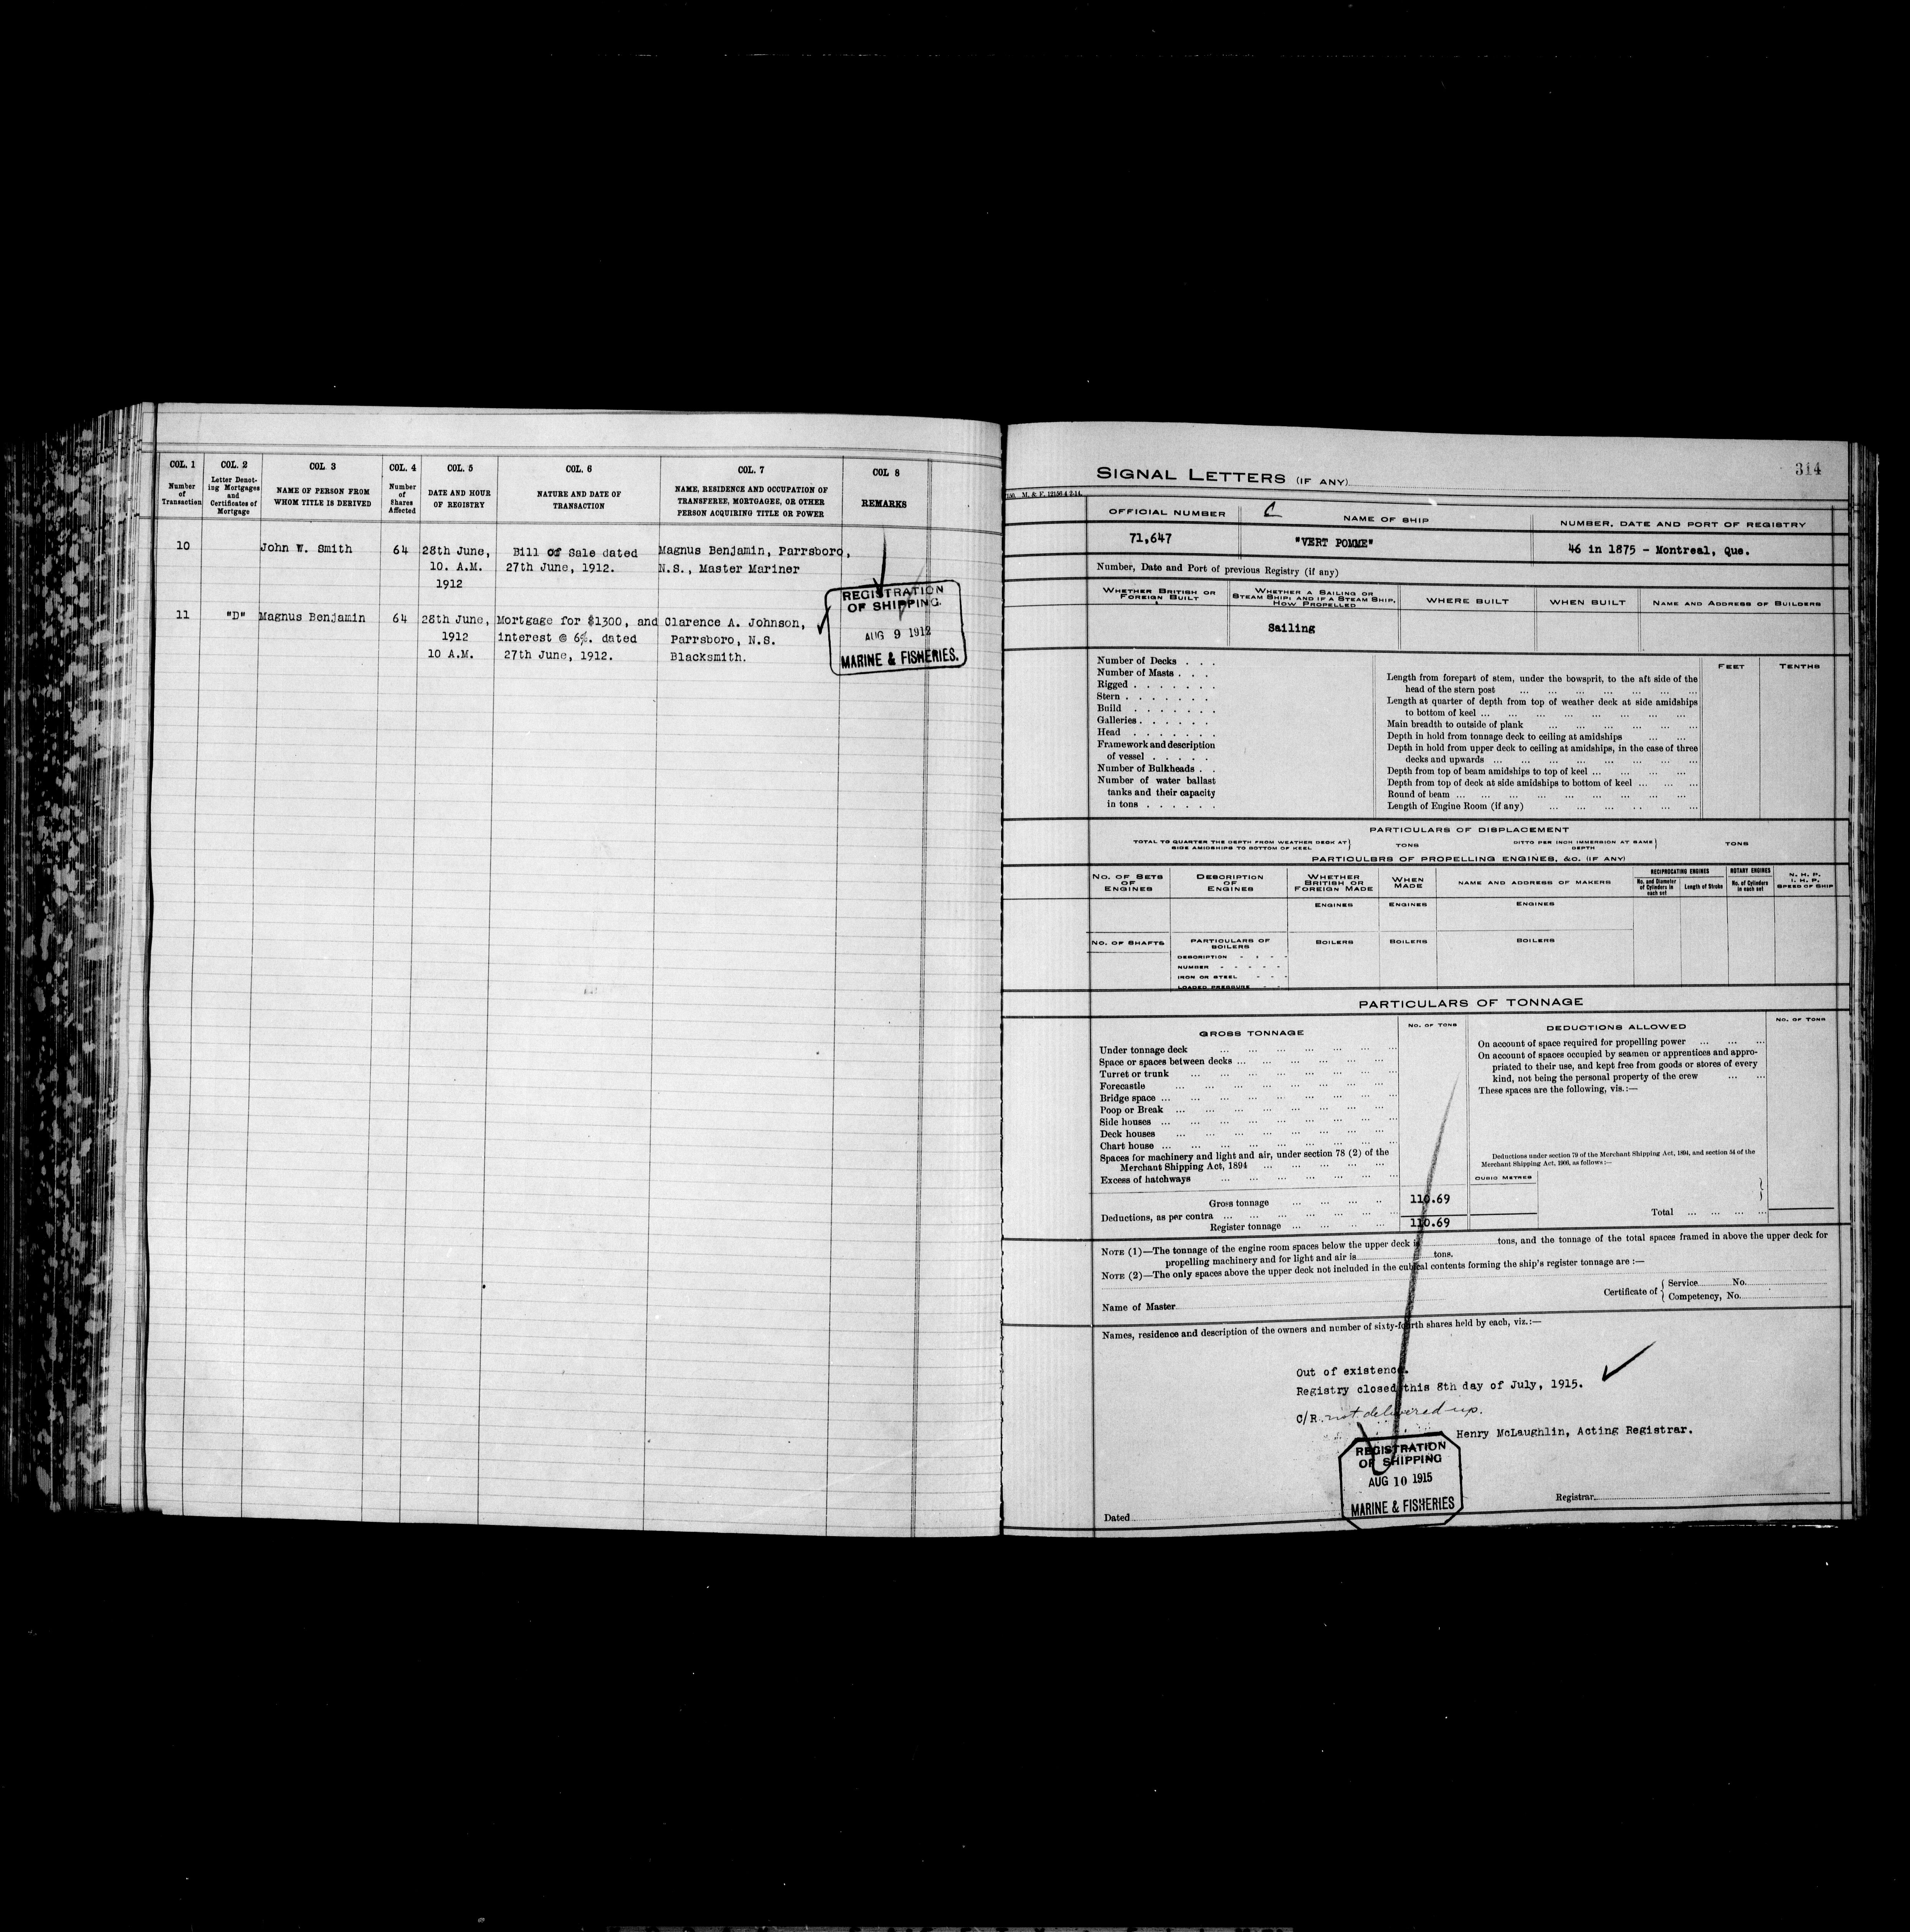 COL. 1
Number
of
Transaction
COL. 2
Letter Denot-
ing Mortgages
and
Certificates of
Mortgage
COL. 3
NAME OF PERSON FROM
WHOM TITLE IS DERIVED
COL. 4
Number
of
Shares
Affected
COL. 5
DATE AND HOUR
OF REGISTRY
COL. 6
NATURE AND DATE OF
TRANSACTION
COL. 7
NAME, RESIDENCE AND OCCUPATION OF
TRANSFEREE, MORTGAGEE, OR OTHER
PERSON ACQUIRING TITLE OR POWER
COL 8
REMARKS
10 John W. Smith 64 28th June, Bill of Sale dated Magnus Benjamin, Parrsboro,
10. A.M. 27th June, 1912. N.S., Master Mariner
1912
11 "D" Magnus Benjamin 64 28th June, Mortgage for $1300, and Clarence A. Johnson,
1912 interest @ 6%. dated Parrsboro, N.S.
10 A.M. 27th June, 1912. Blacksmith.
REGISTRATION
OF SHIPPING.
AUG 9 1912
MARINE & FISHERIES.
314
SIGNAL LETTERS (IF ANY)
OFFICIAL NUMBER
71,647
C
NAME OF SHIP
"VERT POMME"
NUMBER, DATE AND PORT OF REGISTRY
46 in 1875 - Montreal, Que.
Number, Date and Port of previous Registry (if any)
WHETHER BRITISH OR
FOREIGN BUILT
WHETHER A SAILING OR
STEAM SHIP; AND IF A STEAM SHIP,
HOW PROPELLED
Sailing
WHERE BUILT
WHEN BUILT
NAME AND ADDRESS OF BUILDERS
Number of Decks . . .
Number of Masts . . .
Rigged . . . . . . .
Stern . . . . . . .
Build . . . . . . .
Galleries . . . . . .
Head . . . . . . .
Framework and description
of vessel . . . . .
Number of Bulkheads . .
Number of water ballast
tanks and their capacity
in tons . . . . . .
FEET TENTHS
Length from forepart of stem, under the bowsprit, to the aft side of the
head of the stern post
Length at quarter of depth from top of weather deck at side amidships
to bottom of keel
Main breadth to outside of plank
Depth in hold from tonnage deck to ceiling at amidships
Depth in hold from upper deck to ceiling at amidships, in the case of three
decks and upwards
Depth from top of beam amidships to top of keel
Depth from top of deck at side amidships to bottom of keel
Round of beam
Length of Engine Room (if any)
PARTICULARS OF DISPLACEMENT
TOTAL TO QUARTER THE DEPTH FROM WEATHER DECK AT
SIDE AMIDSHIPS TO BOTTOM OF KEEL
TONS
DITTO PER INCH IMMERSION AT SAME
DEPTH
TONS
PARTICULBRS OF PROPELLING ENGINES, &C. (IF ANY)
NO. OF SETS
OF
ENGINES
DESCRIPTION
OF
ENGINES
WHETHER
BRITISH OR
FOREIGN MADE
WHEN
MADE
NAME AND ADDRESS OF MAKERS
RECIPROCATING ENGINES
No. and Diameter
of Cylinders in
each set
Length of Stroke
NOTARY ENGINES
No. of Cylinders
in each set
N. H. P.
I. H. P.
SPEED OF SHIP
ENGINES ENGINES ENGINES
NO. OF SHAFTS
PARTICULARS OF
BOILERS
BOILERS BOILERS BOILERS
DESCRIPTION
NUMBER
IRON OR STEEL
LOADED PRESSURE
PARTICULARS OF TONNAGE
GROSS TONNAGE
NO. OF TONS
Under tonnage deck
Space or spaces between decks
Turret or trunk
Forecastle
Bridge space
Poop or Break
Side houses
Deck houses
Chart house
Spaces for machinery and light and air, under section 78 (2) of the
Merchant Shipping Act, 1894
Excess of hatchways
Gross tonnage 110.69
Deductions, as per contra
Register tonnage 110.69
DEDUCTIONS ALLOWED
NO. OF TONS
On account of space required for propelling power
On account of spaces occupied by seamen or apprentices and appro-
priated to their use, and kept free from goods or stores of every
kind, not being the personal property of the crew
These spaces are the following, vis.:—
Deductions under section 79 of the Merchant Shipping Act, 1894, and section 54 of the
Merchant Shipping Act, 1906, as follows:—
CUBIC METRES
Total
NOTE (1)—The tonnage of the engine room spaces below the upper deck is tons, and the tonnage of the total spaces framed in above the upper deck for
propelling machinery and for light and air is tons.
NOTE (2)—The only spaces above the upper deck not included in the cubical contents forming the ship's register tonnage are :—
Name of Master
Certificate of { Service No.
Competency, No.
Names, residence and description of the owners and number of sixty-fourth shares held by each, viz.:—
Out of existence.
Registry closed this 8th day of July, 1915.
C/R. not delivered up.
Henry McLaughlin, Acting Registrar.
REGISTRATION
OF SHIPPING
AUG 10 1915
MARINE & FISHERIES
Registrar
Dated